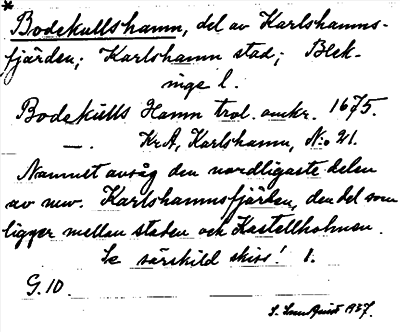 * Bodekullshamn, del av Karlshamns-
fjärden; Karlshamn stad; Blek-
inge l.
Bodekulls Hamn trol. omkr. 1675.
—. KrA, Karlshamn, N:o 21.
Namnet avsåg den nordligaste delen
av nuv. Karlshamnsfjärden, den del som
ligger mellan staden och Kastellholmen.
Se särskild skiss! 1.
G. 10
S. 1927.